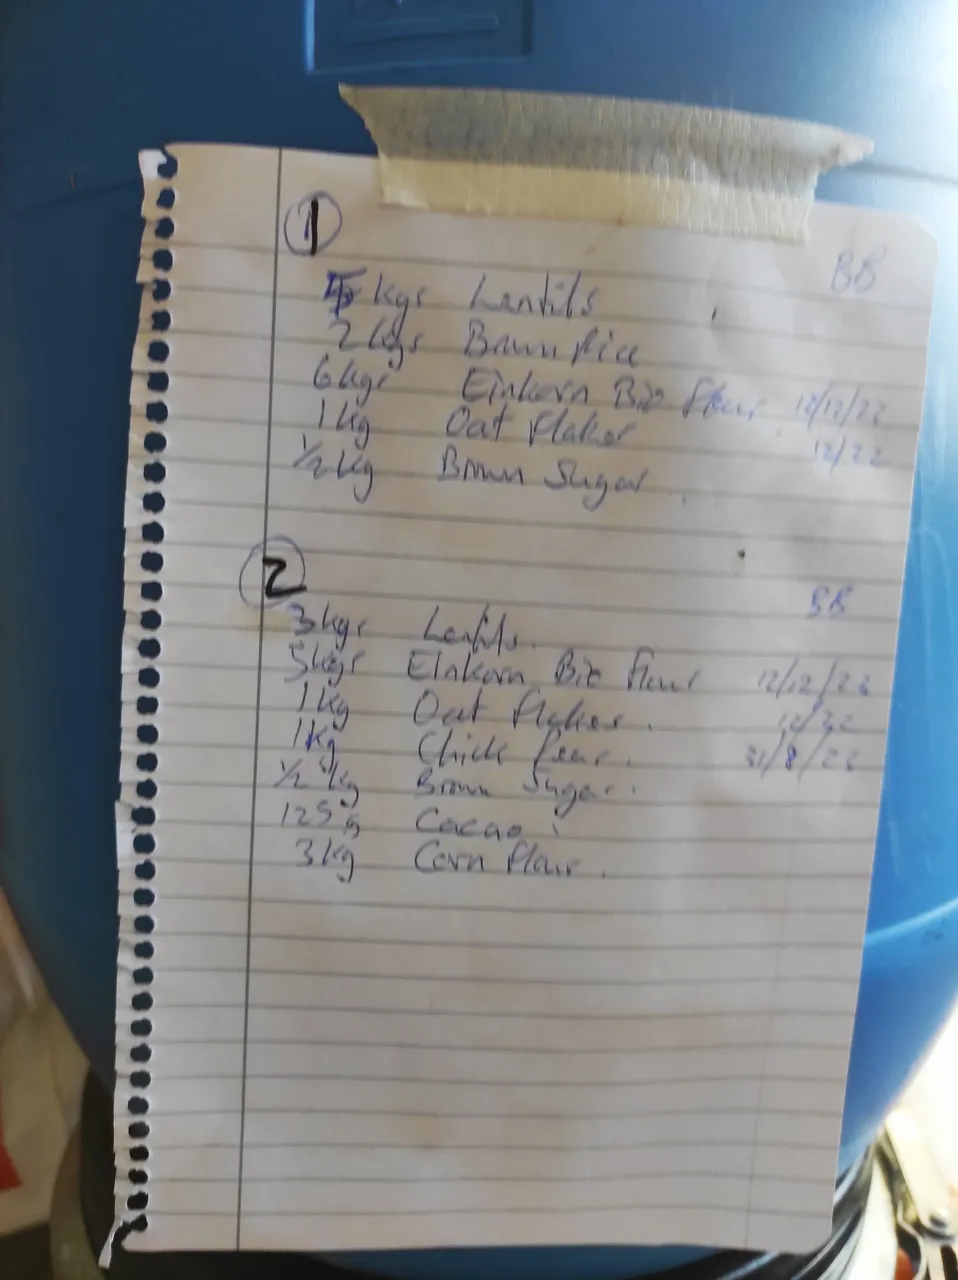 1
BB
kgs Lentils
2 kgs Brown Rice
6 kgs Einkorn Bio Flour 12/12/22
1 kg Oat Flakes 12/22
1/2 kg Brown Sugar
2
BB
3 kgs Lentils.
5 kgs Einkorn Bio Flour 12/12/22
1 kg Oat Flakes. 12/22
1 kg Chick Peas. 31/8/23
1/2 kg Brown Sugar.
125 g Cacao.
3 kg Corn Flour.